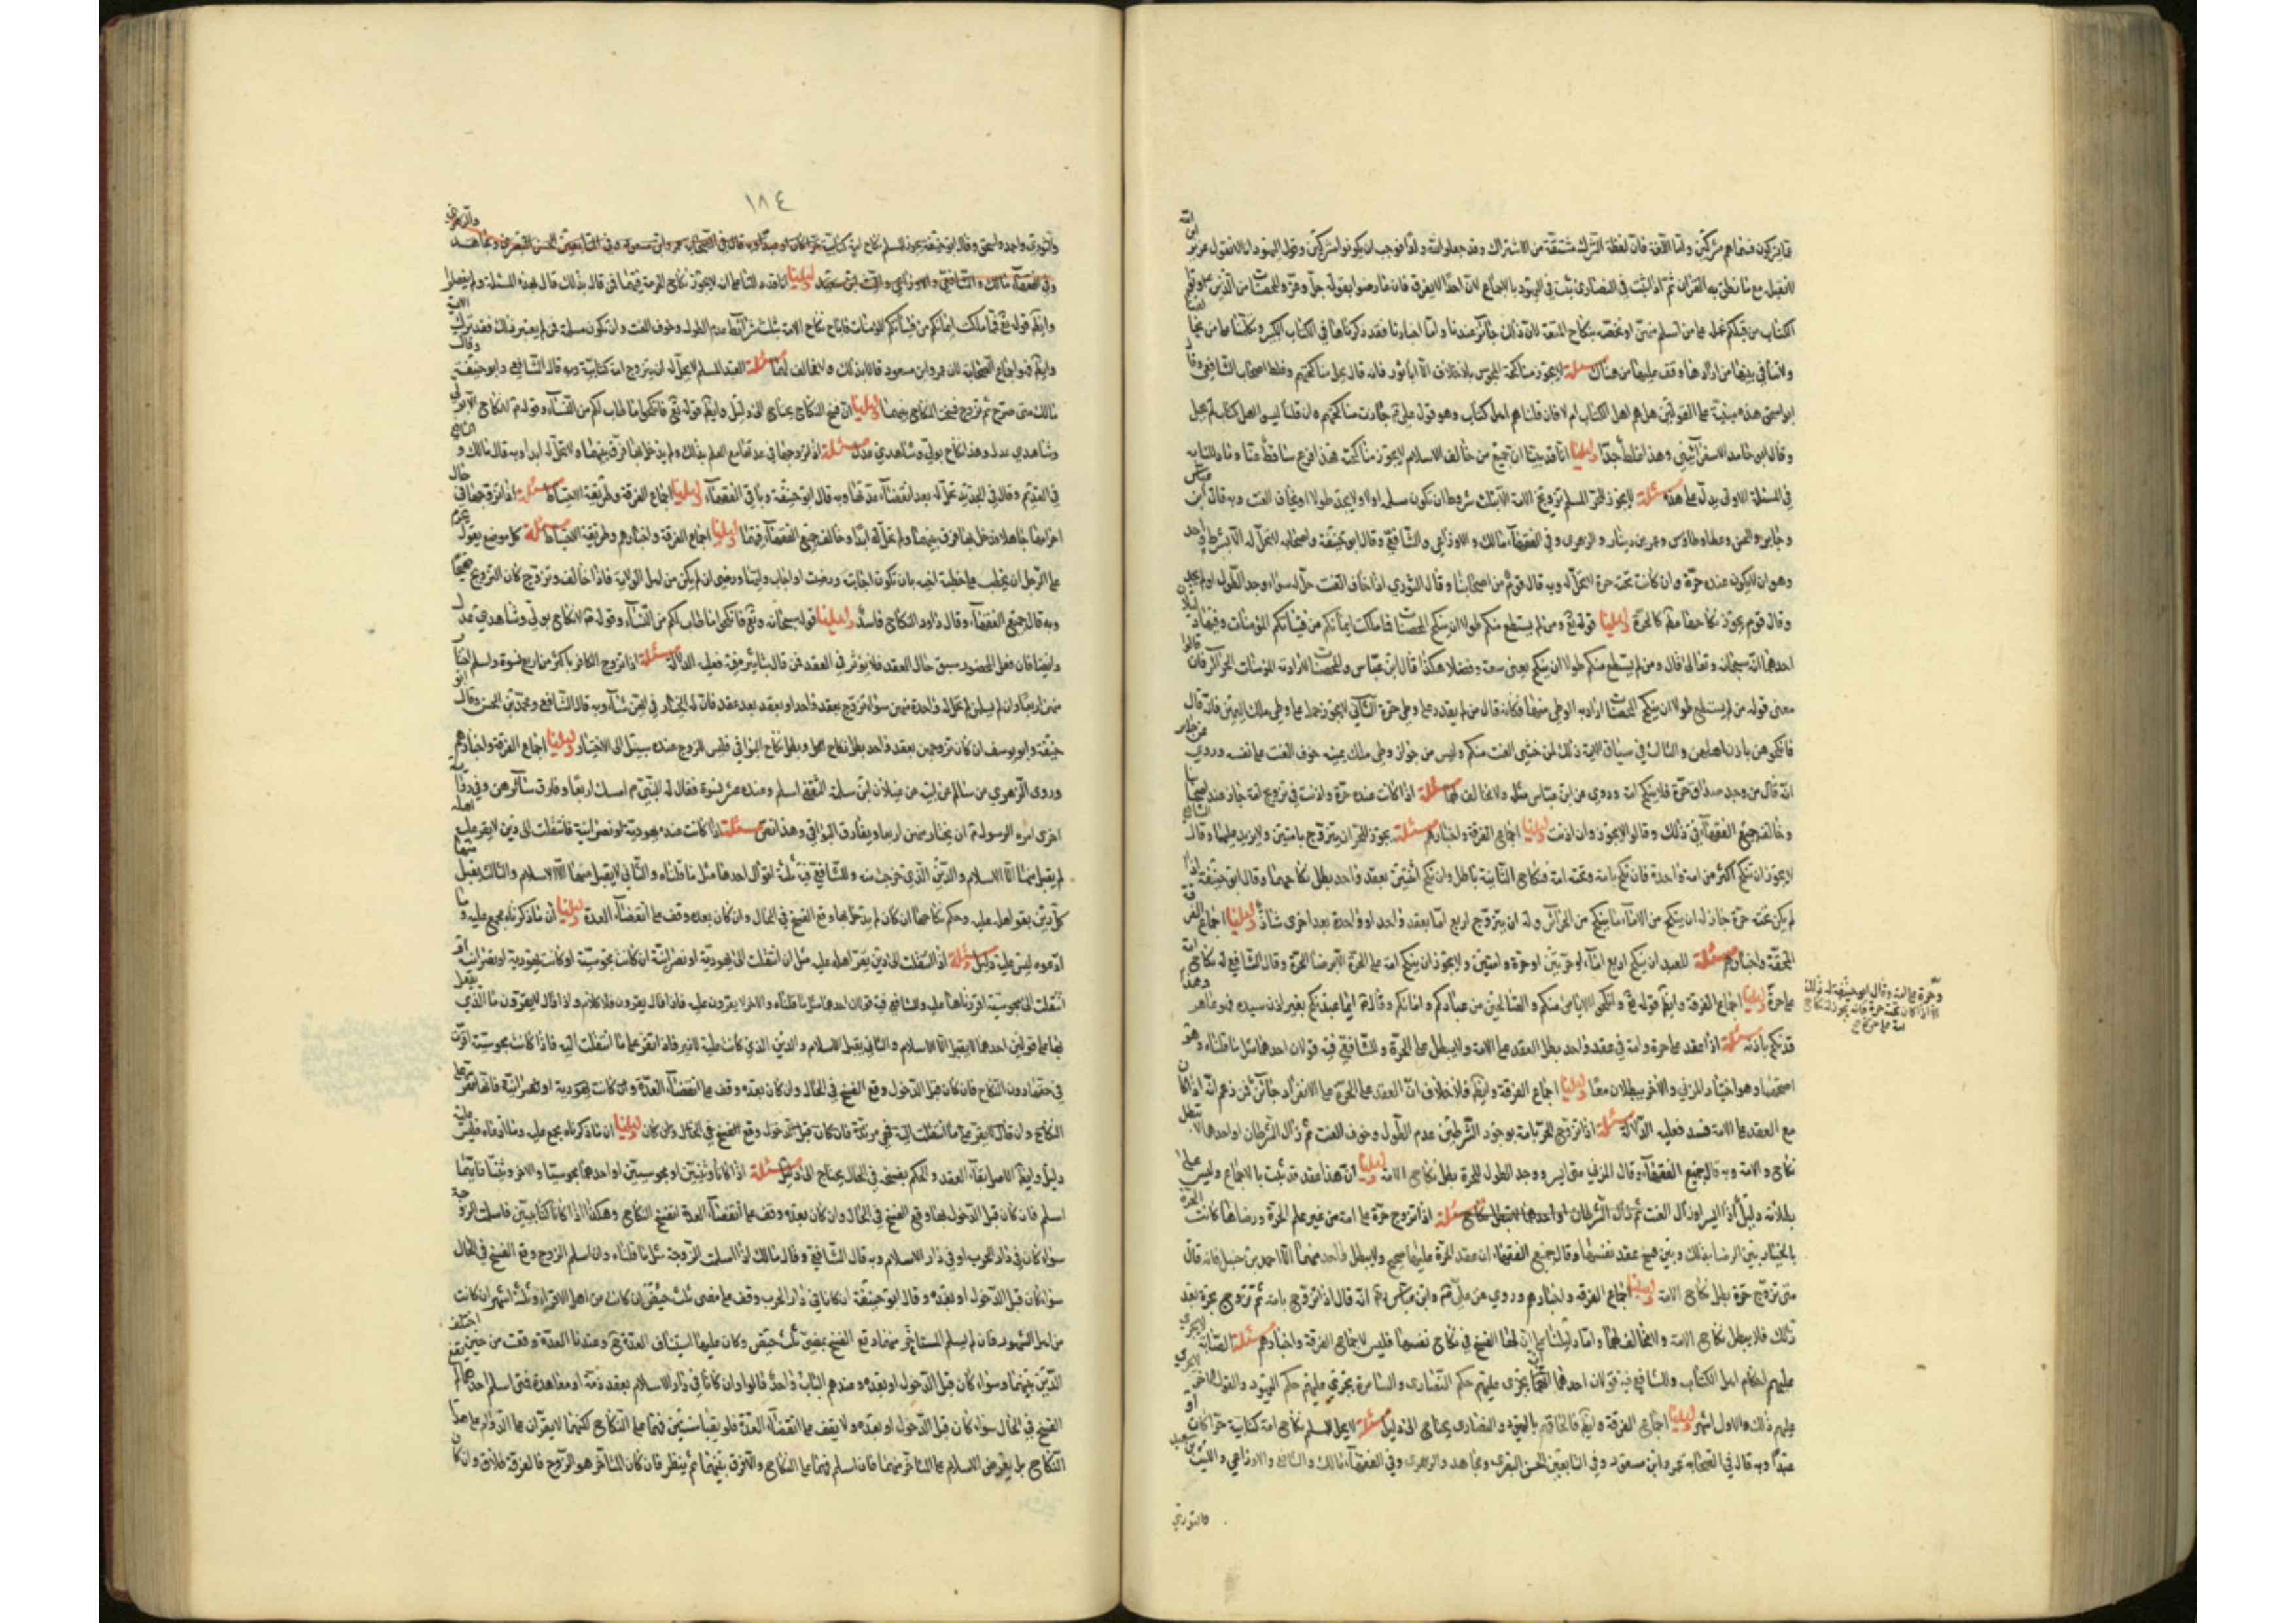 عما يشركون فسماهم مشركين واما اللغة فان لفظة الشرك مشتقة من الاشراك وقد جعلوا لله ولدا فوجب ان يكونوا مشركين وقول اليهود انا لا نقول عزير ابن الله
لا نقبل مع ما نطق به القرآن ثم اذا ثبت في النصارى ثبت في اليهود بالاجماع لان احدا لا يفرق فان عارضوا بقوله جل وعز والمحصنات من الذين اوتوا
الكتاب من قبلكم نحمله على من اسلم منهن او نخصه بنكاح المتعة لان ذلك جائز عندنا واما اخبارنا فقد ذكرناها في الكتاب الكبير وتكلمنا على
من ارادها وقف عليها من هناك مسئلة لا يجوز مناكحة المجوس بلا خلاف الا ابا ثور فانه قال يحل مناكحتهم وغلط اصحاب الشافعي وقال
ابو اسحق هذه مبنية على القولين هل هم اهل الكتاب ام لا فان قلنا هم اهل كتاب وهو قول علي ع جازت مناكحتهم وان قلنا ليسوا اهل كتاب لم يحل
وقال ابو حامد الاسفرايني وهذا غلط جدا دليلنا انا قد بينا ان جميع من خالف الاسلام لا يجوز مناكحته هذا الفرع ساقط عنا
في المسئلة الاولى يدل على هذه مسئلة لا يجوز للحر المسلم تزويج الامة الا بثلث شروط ان تكون مسلمة اولا ولا يجد طولا ويخاف العنت وبه قال ابن عباس
وجابر والحسن وعطا وطاوس وعمرو بن دينار والزهري وفي الفقهاء مالك والاوزاعي والشافعي وقال ابو حنيفة واصحابه لا تحل له الا بشرط واحد
وهو ان لا يكون عنده حرة وان كانت تحته حرة لم تحل له وبه قال قوم من اصحابنا وقال الثوري اذا خاف العنت حل له سواء وجد الطول او لم يجد
وقال قوم يجوز نكاحها مطلقا كالحرة دليلنا قوله تع ومن لم يستطع منكم طولا ان ينكح المحصنات فمما ملكت ايمانكم من فتياتكم المؤمنات وفيها
احدهما انه سبحانه وتعالى قال ومن لم يستطع منكم طولا ان ينكح يعني سعة وفضلا هكذا قال ابن عباس والمحصنات اراد به المؤمنات الحرائر فان قالوا
معنى قوله من لم يستطع طولا ان ينكح المحصنات اراد به الوطي منها فكانه قال من لم يقدر على وطي حرة
فانكحوهن باذن اهلهن والثالث في سياق الاية ذلك لمن خشي العنت منكم وليس من جواز وطي ملك يمينه خوف العنت على نفسه وروي عن جابر
انه قال من وجد صداق حرة فلا ينكح امة وروي عن ابن عباس مثله ولا مخالف لهما مسئلة اذا كانت عنده حرة واذنت في تزويج امة جاز عند اصحابنا
وخالف جميع الفقهاء في ذلك وقالوا لا يجوز وان اذنت دليلنا اجماع الفرقة واخبارهم مسئلة يجوز للحر ان يتزوج بامتين ولا يزيد عليهما وقال الشافعي
لا يجوز ان ينكح اكثر من امة واحدة فان نكح بامة وتحته امة فنكاح الثانية باطل وان نكح اثنتين بعقد واحد بطل نكاحهما وقال ابو حنيفة اذا
لم يكن تحته حرة جاز له ان ينكح من الاماء ما ينكح من الحرائر وله ان يتزوج اربع اما بعقد واحد او واحدة بعد اخرى شاء دليلنا اجماع الفرقة
المحقة واخبارهم مسئلة للعبد ان ينكح اربع اماء او حرتين او حرة وامتين ولا يجوز ان ينكح امة على الحرة الا برضا الحرة وقال الشافعي له نكاح امة
على حرة دليلنا اجماع الفرقة وايضا قوله تع وانكحوا الايامى منكم والصالحين من عبادكم وامائكم وقال ع ايما عبد نكح بغير اذن سيده فهو عاهر وهذا
قد نكح باذنه مسئلة اذا عقد على حرة وامة في عقد واحد بطل العقد على الامة ولا يبطل على الحرة وللشافعي فيه قولان احدهما مثل ما قلناه وهو
اصحهما وهو اختيار المزني والاخر يبطلان معا دليلنا اجماع الفرقة وايضا فلا خلاف ان العقد على الحرة على الانفراد جائز فمن زعم انه اذا كان
مع العقد على الامة فسد فعليه الدلالة مسئلة اذا تزوج الحر بامة بوجود الشرطين عدم الطول وخوف العنت ثم زال الشرطان او احدهما لا تبطل
نكاح الامة وبه قال جميع الفقهاء وقال المزني متى ايسر ووجد الطول للحرة بطل نكاح الامة دليلنا ان هذا عقد قد ثبت بالاجماع وليس على
بطلانه دليل اذا ايسر او زال العنت مسئلة اذا تزوج حرة على امة من غير علم الحرة ورضاها كانت الحرة
بالخيار بين الرضا بذلك وبين فسخ عقد نفسها وقال جميع الفقهاء ان عقد الحرة عليها صحيح ولا يبطل واحد منهما الا احمد بن حنبل فانه قال
متى تزوج حرة بطل نكاح الامة دليلنا اجماع الفرقة واخبارهم وروي عن علي ع وابن عباس انه قال اذا تزوج بامة ثم تزوج بحرة بعد
ذلك فلا يبطل نكاح الامة ولا مخالف لهما واما دليلنا على ان لها الفسخ في نكاح نفسها فليس لاجماع الفرقة واخبارهم مسئلة الصابئة لا يجري
عليهم احكام اهل الكتاب وللشافعي فيه قولان احدهما انه يجري عليهم حكم النصارى والسامرة يجري عليهم حكم اليهود والقول الاخر لا يجري
عليهم ذلك والاول اشهر دليلنا اجماع الفرقة وايضا فالحاقهم باليهود والنصارى يحتاج الى دليل مسئلة لا يحل للمسلم نكاح امة كتابية حرا كان او
عبدا وبه قال في الصحابة عمر وابن مسعود وفي التابعين الحسن البصري ومجاهد والزهري وفي الفقهاء مالك والشافعي والاوزاعي والليث بن سعيد
والثوري
وحرة على امة وقال ابو حنيفة له ذلك
الا اذا كان تحته حرة فانه لا يجوز له نكاح
امة على حرة
١٨٤
والثوري واحمد واسحق وقال ابو حنيفة يجوز للمسلم نكاح امة كتابية حرا كان او عبدا وبه قال في الصحابة عمر وابن مسعود وفي التابعين الحسن البصري ومجاهد والزهري
وفي الفقهاء مالك والشافعي والاوزاعي والليث بن سعيد دليلنا
وايضا قوله تع فمما ملكت ايمانكم من فتياتكم المؤمنات فاباح نكاح الامة بثلث شرائط عدم الطول وخوف العنت وان تكون مسلمة فمن لم يعتبر ذلك فقد ترك الاية
وايضا فهو اجماع الصحابة لان عمر وابن مسعود قالا بذلك ولا مخالف لهما مسئلة العبد المسلم لا يحل له ان يتزوج امة كتابية وبه قال الشافعي وابو حنيفة وقال
مالك متى دليلنا ان فسخ النكاح يحتاج الى دليل وايضا قوله تع فانكحوا ما طاب لكم من النساء وقوله ع لا نكاح الا بولي
وشاهدي عدل وهذا نكاح بولي وشاهدي عدل مسئلة اذا تزوجها في عدتها مع العلم بذلك ولم يدخل بها فرق بينهما ولا تحل له ابدا وبه قال مالك والشافعي
في القديم وقال في الجديد تحل له بعد انقضاء عدتها وبه قال ابو حنيفة وباقي الفقهاء دليلنا اجماع الفرقة وطريقة الاحتياط مسئلة اذا تزوجها في حال
احرامها جاهلا فدخل بها فرق بينهما ولم تحل له ابدا وخالف جميع الفقهاء فيهما دليلنا اجماع الفرقة واخبارهم وطريقة الاحتياط مسئلة كل موضع يقول يحرم
على الرجل ان يخطب على خطبة اخيه بان تكون اجابت ورضيت او اجاب وليها ورضي ان لم يكن من اهل الولاية فاذا خالف وتزوج كان التزويج صحيحا
وبه قال جميع الفقهاء وقال داود النكاح فاسد دليلنا قوله سبحانه وتع فانكحوا ما طاب لكم من النساء وقوله ع لا نكاح الا بولي وشاهدي عدل
وايضا فان فعل المحضور سبق حال العقد فلا يؤثر في العقد فمن قال بتأثيره فيه فعليه الدلالة مسئلة اذا تزوج الكافر باكثر من اربع نسوة واسلم اختار
منهن اربعا وان لم يسلمن لم تحل له واحدة منهن سواء تزوج بعقد واحد او بعقد بعد عقد فان له الخيار في ايهن شاء وبه قال الشافعي ومحمد بن الحسن وقال ابو
حنيفة وابو يوسف ان كان تزوجهن بعقد واحد بطل نكاح الكل وبطل نكاح البواقي فليس للزوج عنده سبيل الى الاختيار دليلنا اجماع الفرقة واخبارهم
وروى الزهري عن سالم عن ابيه ان غيلان بن سلمة الثقفي اسلم وعنده عشر نسوة فقال له النبي ص امسك اربعا وفارق سائرهن وفي رواية
اخرى امره الرسول ص ان يختار منهن اربعا ويفارق البواقي وهذا نص مسئلة اذا كانت عنده يهودية او نصرانية فانتقلت الى دين لا يقر عليه اهله
لم يقبل منها الا الاسلام والدين الذي خرجت منه وللشافعي فيه ثلثة اقوال احدها مثل ما قلناه والثاني لا يقبل منها الا الاسلام والثالث يقبل منها
كل دين يقر اهله عليه وحكم نكاحها ان كان لم يدخل بها وقع الفسخ في الحال وان كان بعده وقف على انقضاء العدة دليلنا ان ما ذكرناه مجمع عليه وما
ادعوه ليس عليه دليل مسئلة اذا انتقلت الى دين يقر اهله عليه مثل ان انتقلت الى يهودية او نصرانية ان كانت مجوسية او كانت يهودية او نصرانية
انتقلت الى مجوسية اقررناها عليه وللشافعي فيه قولان احدهما مثل ما قلناه والاخر لا يقرون عليه فاذا قال يقرون فلا كلام واذا قال لا يقرون ما الذي يفعل
بها على قولين احدهما لا يقبل الا الاسلام والثاني يقبل الاسلام والدين الذي كانت عليه لا غير فاذا اقر على ما انتقلت اليه فاذا كانت مجوسية اقرت
في حقها دون النكاح فان كان قبل الدخول وقع الفسخ في الحال وان كان بعده وقف على انقضاء العدة وان كانت يهودية او نصرانية فانها تقر على
النكاح وان قال لا يقر على ما انتقلت اليه فهي مرتدة فان كان قبل الدخول وقع الفسخ في الحال وان كان دليلنا ان ما ذكرناه مجمع عليه وما ادعاه فليس عليه
دليل وايضا الاصل بقاء العقد والحكم بفسخه في الحال يحتاج الى دليل مسئلة اذا كانا وثنيين او مجوسيين او احدهما مجوسيا والاخر وثنيا فايهما
اسلم فان كان قبل الدخول بها وقع الفسخ في الحال وان كان بعده وقف على انقضاء العدة انفسخ النكاح وهكذا اذا كانا كتابيين فاسلمت الزوجة
سواء كان في دار الحرب او في دار الاسلام وبه قال الشافعي وقال مالك اذا اسلمت الزوجة مثل ما قلناه وان اسلم الزوج وقع الفسخ في الحال
سواء كان قبل الدخول او بعده وقال ابو حنيفة ان كانا في دار الحرب وقف على مضي ثلث حيض ان كانت من اهل الاقراء وثلث اشهر ان كانت
من اهل الشهور فان لم يسلم المتأخر منهما وقع الفسخ بمضي ثلث حيض وكان عليها استيناف العدة ح وعندنا العدة وقعت من حين اختلف
الدين بينهما وسواء كان قبل الدخول او بعده وعندهم الباب واحد قالوا وان كانا في دار الاسلام بعقد ذمة او معاهدة فمتى اسلم احدهما لم يقع
الفسخ في الحال سواء كان قبل الدخول او بعده ولا يقف على انقضاء العدة فلو بقيا سنين فهما على النكاح لكنهما لا يقران على الدوام على هذا
النكاح بل يعرض الاسلام على المتأخر منهما فان اسلم فهما على النكاح والا فرق بينهما ثم ينظر فان كان المتأخر هو الزوج فالفرقة طلاق وان كان